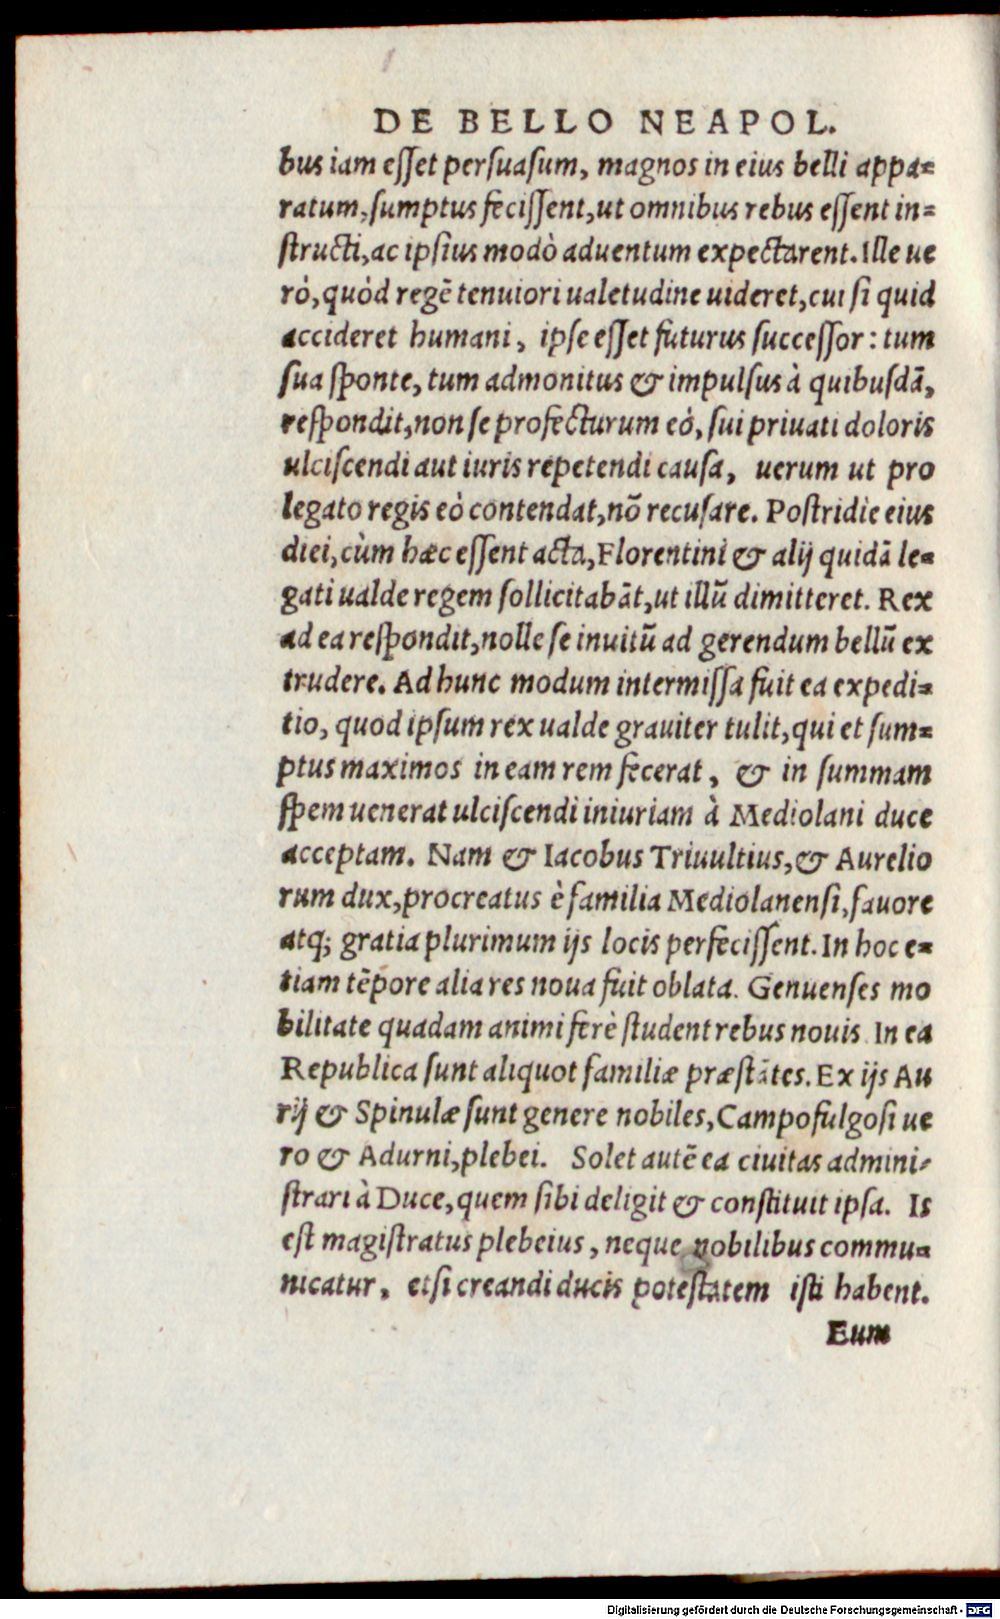 DE BELLO NEAPOL.
bus iam esset persuasum, magnos in eius belli appa=
ratum, sumptus fecissent, ut omnibus rebus essent in=
structi, ac ipsius modò aduentum expectarent. Ille ue
rò, quòd regẽ tenuiori ualetudine uideret, cui si quid
accideret humani, ipse esset futurus successor: tum
sua sponte, tum admonitus & impulsus à quibusdã,
respondit, non se profecturum eò, sui priuati doloris
ulciscendi aut iuris repetendi causa, uerum ut pro
legato regis eò contendat, nõ recusare. Postridie eius
diei, cùm hæc essent acta, Florentini & alij quidã le=
gati ualde regem sollicitabãt, ut illũ dimitteret. Rex
ad ea respondit, nolle se inuitũ ad gerendum bellũ ex
trudere. Ad hunc modum intermissa fuit ea expedi=
tio, quod ipsum rex ualde grauiter tulit, qui et sum=
ptus maximos in eam rem fecerat, & in summam
spem uenerat ulciscendi iniuriam à Mediolani duce
acceptam. Nam & Iacobus Triuultius, & Aurelio
rum dux, procreatus è familia Mediolanensi, fauore
atq; gratia plurimum ijs locis perfecissent. In hoc e=
tiam tẽpore alia res noua fuit oblata. Genuenses mo
bilitate quadam animi ferè student rebus nouis. In ea
Republica sunt aliquot familiæ præstãtes. Ex ijs Au
rij & Spinulæ sunt genere nobiles, Campofulgosi ue
ro & Adurni, plebei. Solet autẽ ea ciuitas admini-
strari à Duce, quem sibi deligit & constituit ipsa. Is
est magistratus plebeius, neque nobilibus commu=
nicatur, etsi creandi ducis potestatem isti habent.
Eum
Digitalisierung gefördert durch die Deutsche Forschungsgemeinschaft - DFG